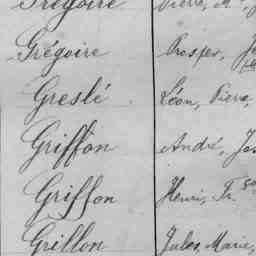 Grégoire Pierre, M.
Grégoire Prosper,
Greslé Léon, Pierre,
Griffon André, Jos
Griffon Henri, Fr.
Grillon Jules, Marie,